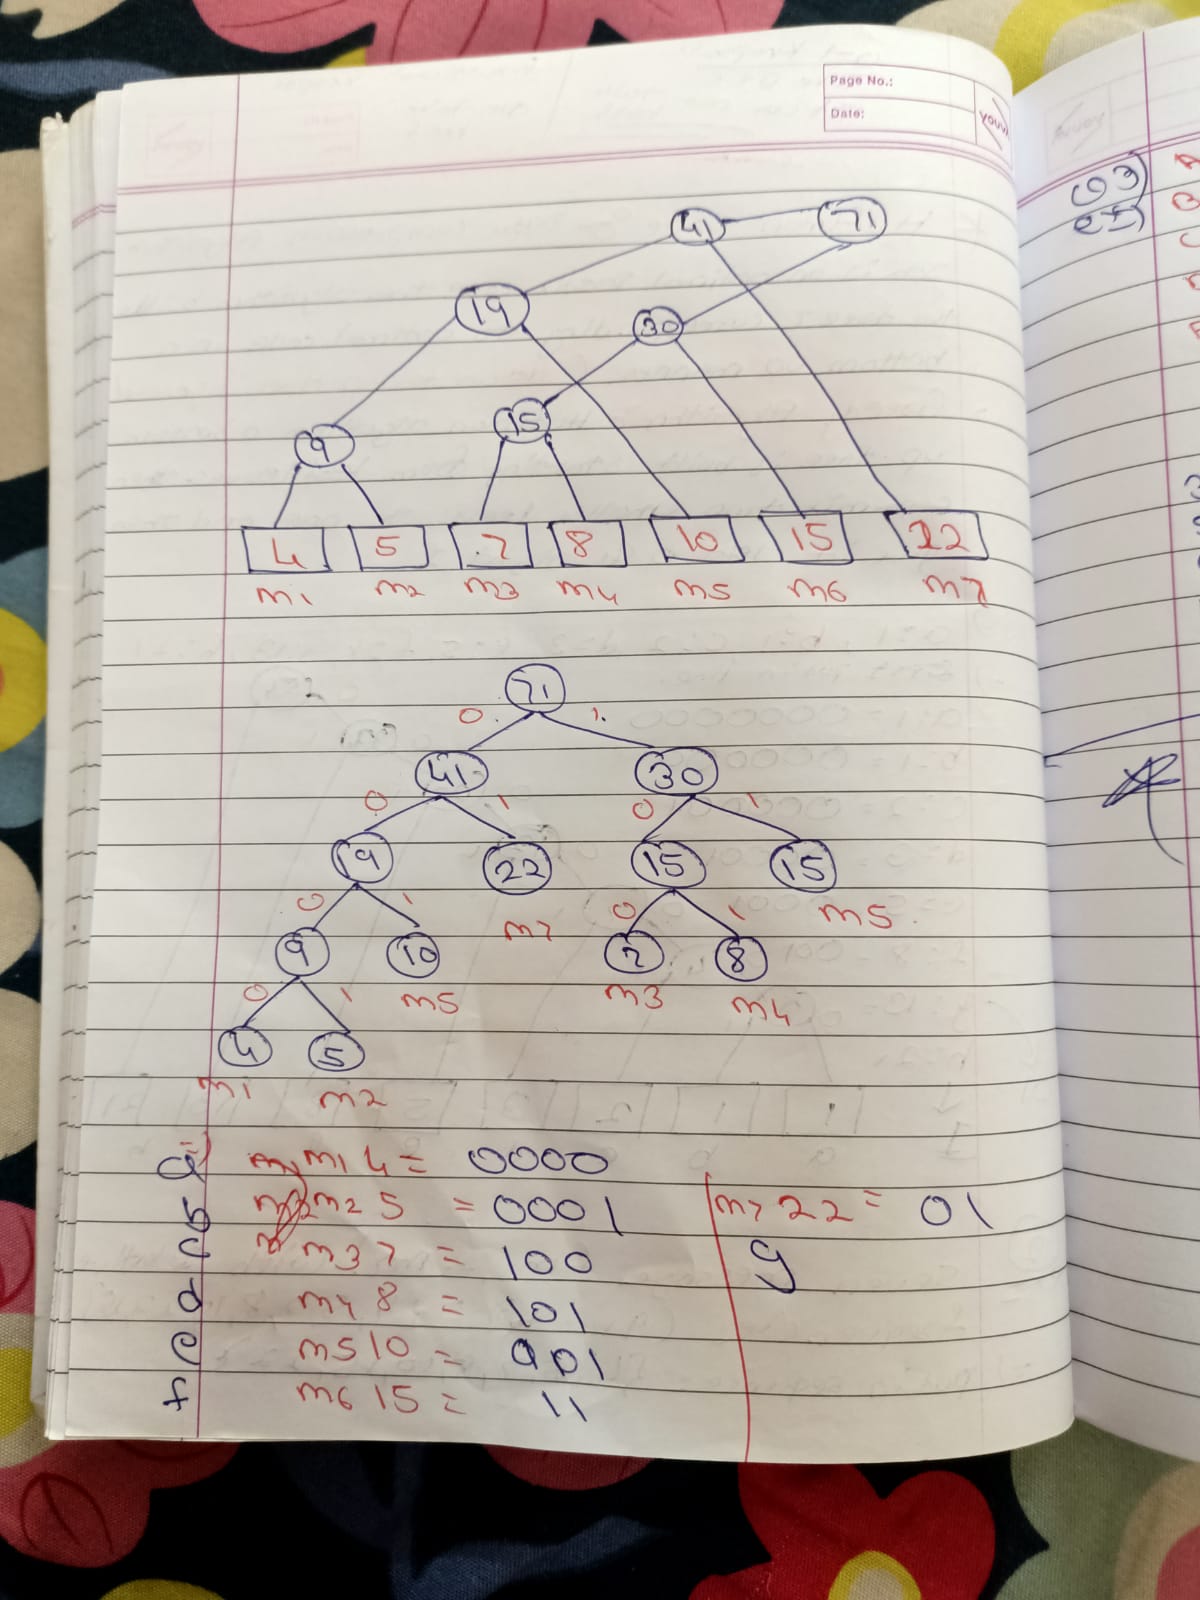 Page No.:
Date:
youva
41 71
19 30
9 15
4 5 7 8 10 15 22
m1 m2 m3 m4 m5 m6 m7
71
0 1
41 30
0 1 0 1
19 22 15 15
0 1 m7 0 1 m5
9 10 7 8
0 1 m5 m3 m4
4 5
m1 m2
a m1 4 = 0000
b m2 5 = 0001 m7 22 = 01
c m3 7 = 100 g
d m4 8 = 101
e m5 10 = 001
f m6 15 = 11